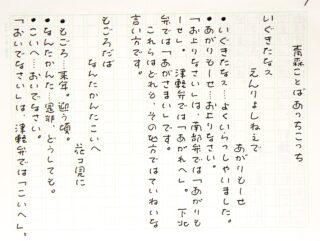 青森ことばあっちこっち
いぐきたなス
えんりょしねぇで
あがりもーせ
●いぐきたなス…よくいらっしゃいました。
●あがりもーせ…お上りなさい。
「お上りなさい」は南部弁では「あがりも
ーせ」。津軽弁では「あがれへ」。下北
弁では「あがさまい」です。
これらはどれも、その地方ではていねいな
言い方です。
もごろだば
なんたかんたこいへ
花コ見に
●もごろ…来年。迎う頃。
●なんたかんた…是非、どうしても。
●こいへ…おいでなさい。
「おいでなさい」は、津軽弁では「こいへ」。